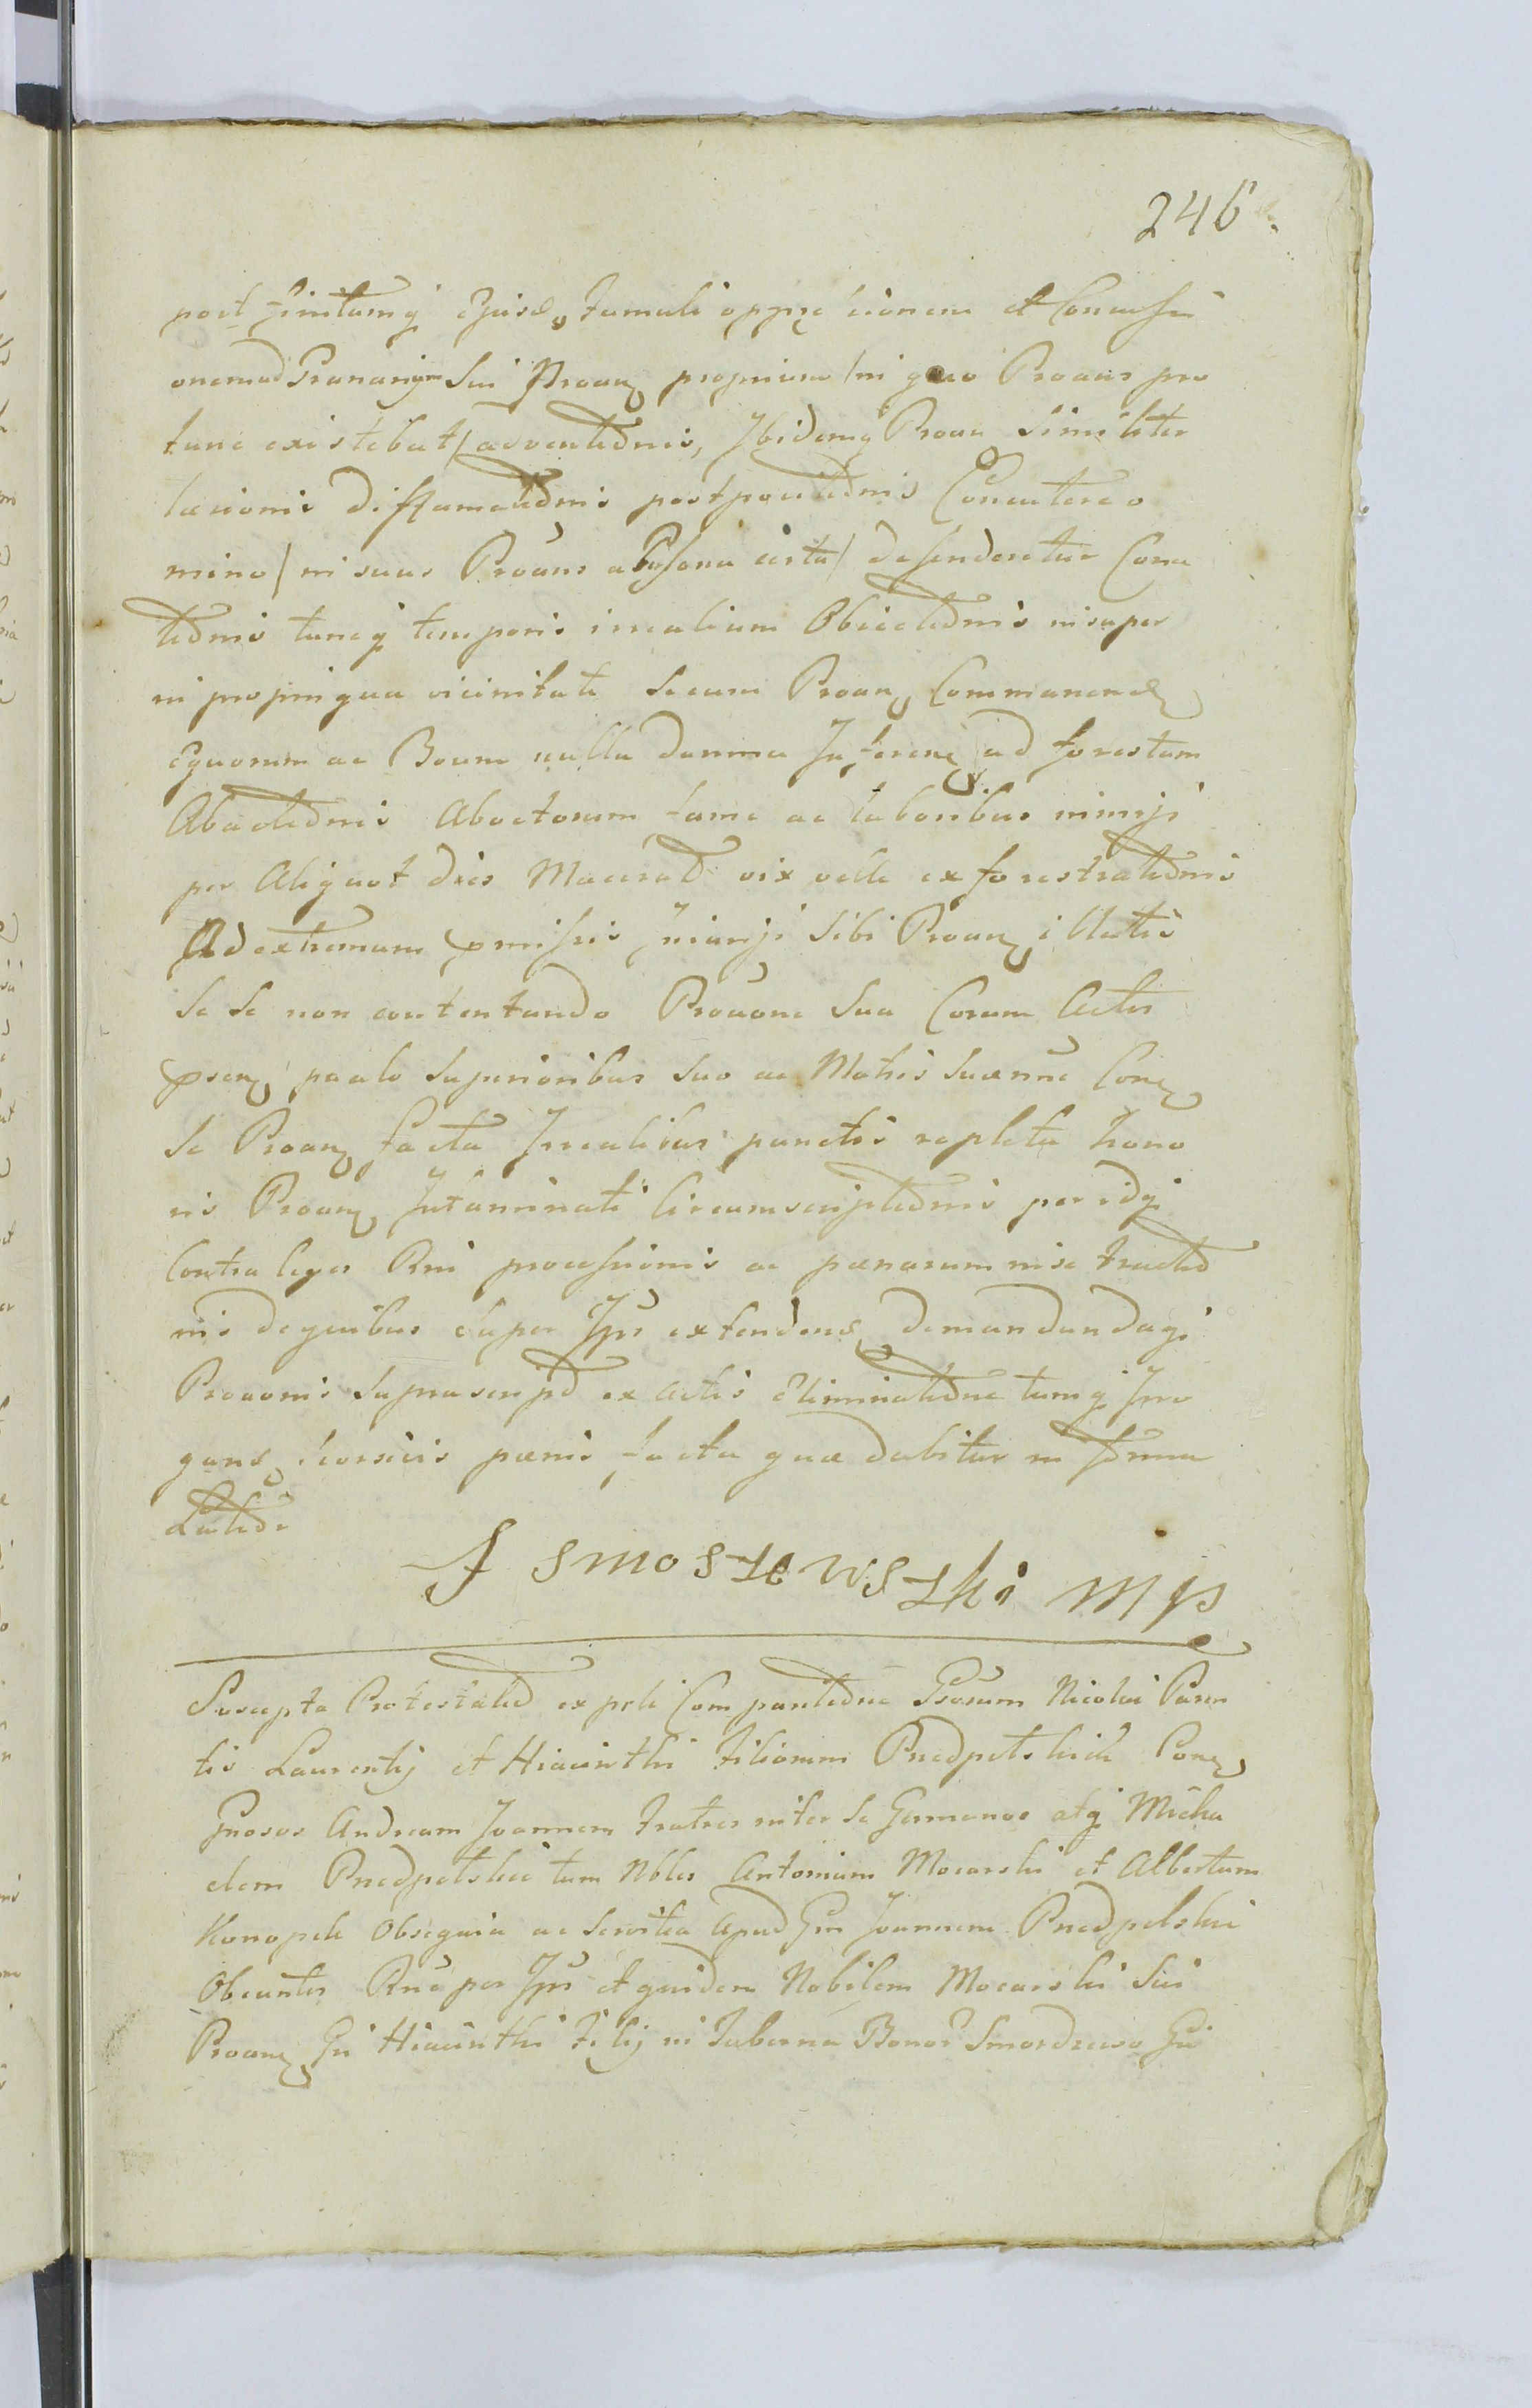 246
post finitamq̃ Ejusd famuli oppræssionem et Concussi
onem ad Granarium Sui Proan proprium / in quo Proans pro
tunc existebat / adventaōnis, Ibidemq̃ Proan similiter
læsionis Diffamaōnis postponiōnis Concutere o
mino / ni suus Proans a Persona certa / defenderetur Cona
tiōnis tuncq̃ temporis irrealium Obiectiōnis insuper
in propinqua vicinitate secum Proan Commanend
Equorum ac Boum nulla damna Inferen ad forestam
Abactiōnis Abactorum fame ac laboribus nimijs
per Aliquot dies Macerað vix velle exforestratiōnis
Ad extremum præmissis iniurijs sibi Proan illatis
se se non contentando Proãone sua Coram Actis
præsen paulo Superioribus suo ac Matris suæ nnẽ Con
se Proan facta Irrealibus punctis repleta hono
ris Proan Intaminati Circumscriptiōnis per idq̃
Contra leges Rni processionis ac pænarum in se tractiō
nis de quibus super Jpũ extendens demandandaq̃
Proãonis suprascrip ex Actis Eliminatiōne tumq̃ Irro
gans seorsivis pænis facta quæ dabitur in forma
Latiōri
J Smoszewski mp
Suscepta Protestatio ex parte Comparitiōne Gsorum Nicolai Paren
tis Laurentij et Hiacinthi filiorum Przedpelskich Con
Gnosos Andream Joannem fratres inter se Germanos atq̃ Micha
elem Przedpelskie tum Nbles Antonium Mocarski et Albertum
Konopek Obsequia ac servitia Apud Gm Joannem Przedpelski
Obeuntes Rñe per Jpũ et quidem Nobilem Mocarski Sui
Proan Gñi Hiacinthi filij in Taberna Bonor Smordzewo Gñi